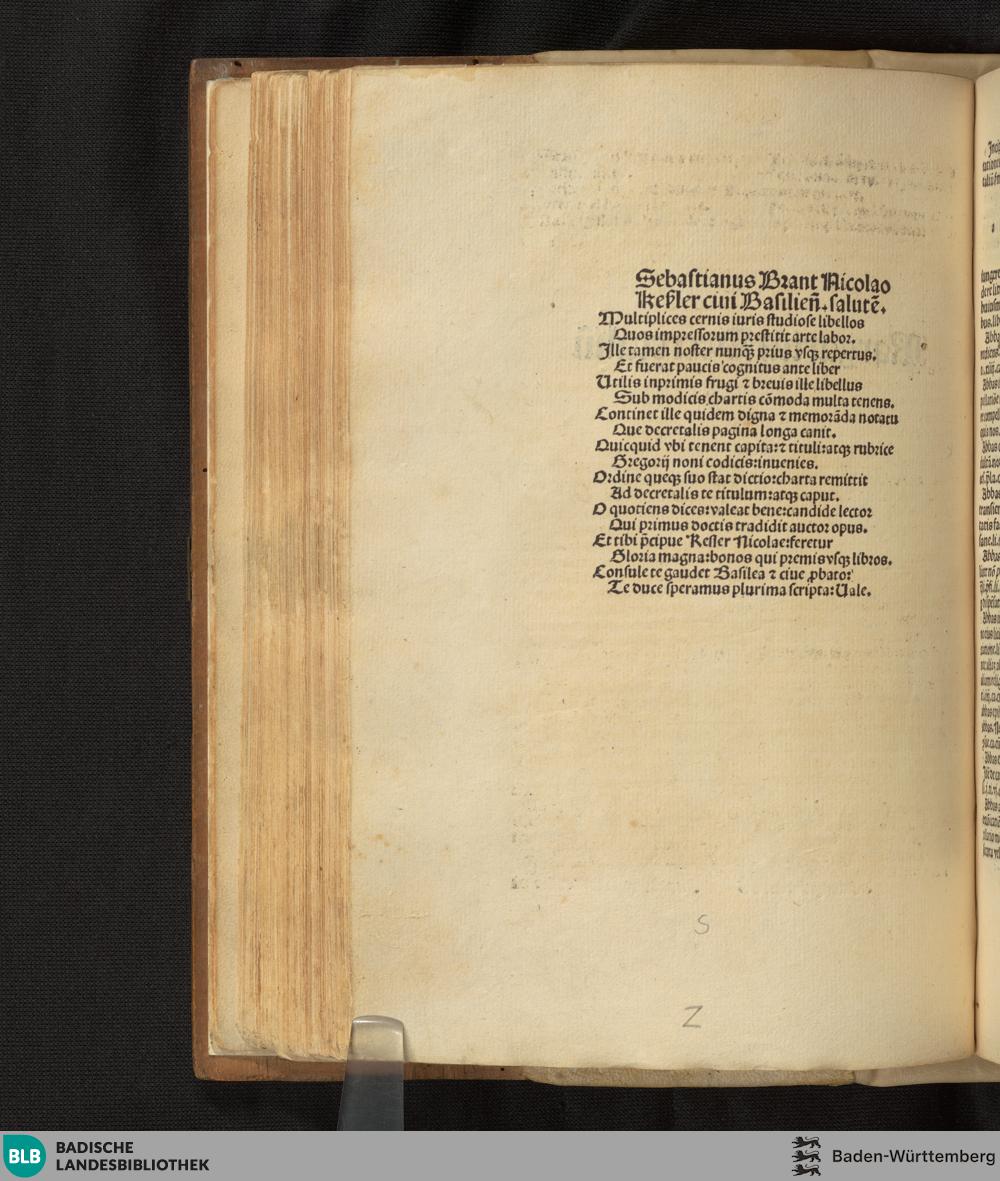 Sebaſtianus Brant Nicolao
Keſler ciui Baſilień. ſalutē.
Multiplices cernis iuris ſtudioſe libellos
Quos impreſſorum preſtitit arte labor.
Ille tamen noſter nunꝗ̃ prius vſqꝫ repertus.
Et fuerat paucis cognitus ante liber
Utilis inprimis frugi ⁊ breuis ille libellus
Sub modicis chartis cōmoda multa tenens.
Continet ille quidem digna ⁊ memorāda notatu
Que decretalis pagina longa canit.
Quicquid vbi tenent capita:⁊ tituli:atqꝫ rubrice
Gregorij noni codicis:inuenies.
Ordine queqꝫ ſuo ſtat dictio:charta remittit
Ad decretalis te titulum:atqꝫ caput.
O quotiens dices:valeat bene:candide lector
Qui primus doctis tradidit auctor opus.
Et tibi p̄cipue Keſler Nicolae:feretur
Gloria magna:bonos qui premis vſqꝫ libros.
Conſule te gaudet Baſilea ⁊ ciue ꝓbato:
Te duce ſperamus plurima ſcripta:Uale.
S
Z
BLB BADISCHE
LANDESBIBLIOTHEK
Baden-Württemberg